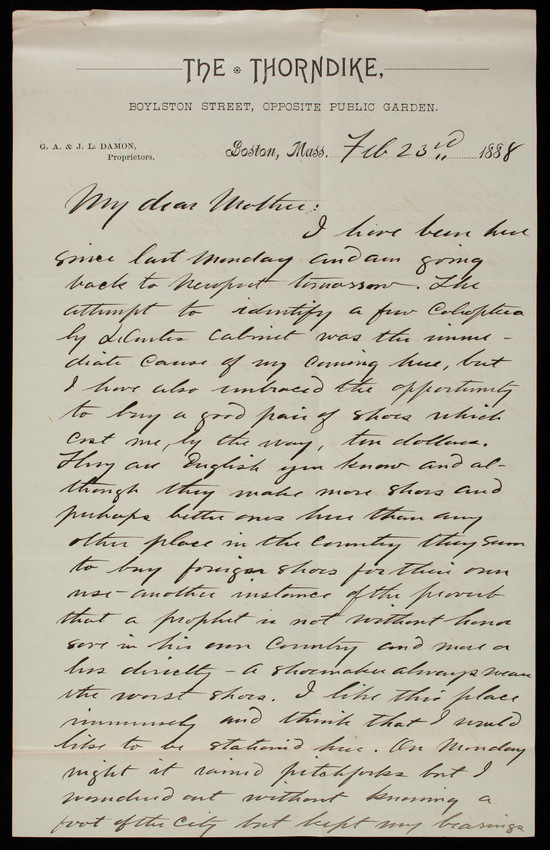 THE THORNDIKE,
BOYLSTON STREET, OPPOSITE PUBLIC GARDEN.
G. A. & J. L. DAMON,
Proprietors.
Boston, Mass. Feb 23rd 1888
My dear Mother:
I have been here
since last Monday and am going
back to Newport tomorrow. The
attempt to identify a few Coleoptera
by LeConte's Cabinet was the imme-
diate cause of my coming here, but
I have also embraced the opportunity
to buy a good pair of shoes which
cost me, by the way, ten dollars.
They are English you know and al-
though they make more shoes and
perhaps better ones here than any
other place in the country they seem
to buy foreign shoes for their own
use - another instance of the proverb
that a prophet is not without honor
save in his own country and more or
less directly - a shoemaker always wears
the worst shoes. I like this place
immensely and think that I would
like to be stationed here. On Monday
night it rained pitchforks but I
wandered out without knowing a
foot of the city but kept my bearings